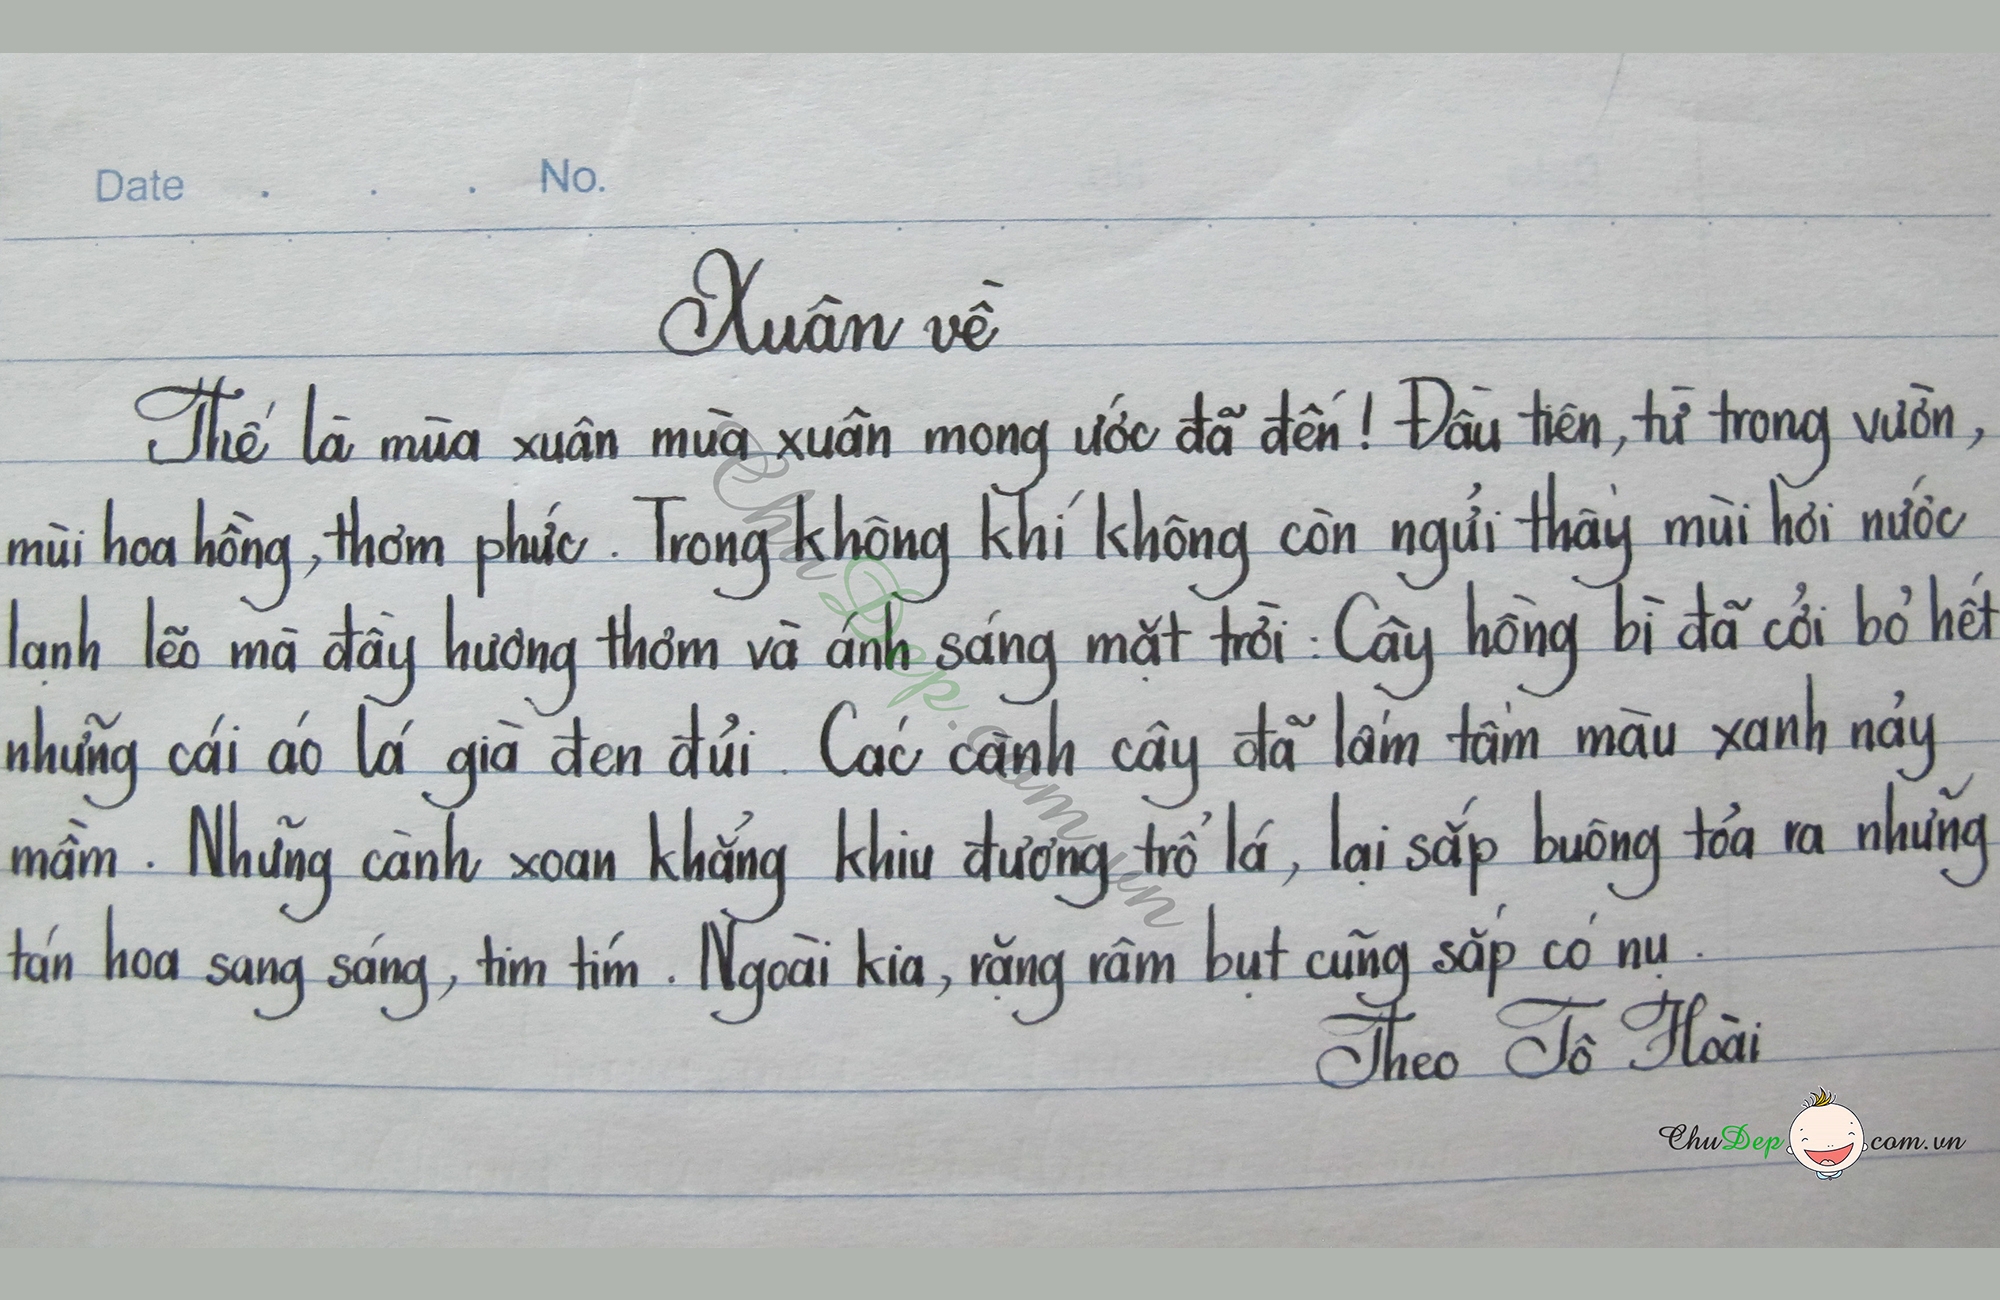 Date . . . No.
Xuân về
Thế là mùa xuân mùa xuân mong ước đã đến! Đầu tiên, từ trong vườn,
mùi hoa hồng, thơm phức. Trong không khí không còn ngửi thấy mùi hơi nước
lạnh lẽo mà đầy hương thơm và ánh sáng mặt trời. Cây hồng bì đã cởi bỏ hết
những cái áo lá già đen đủi. Các cành cây đã lấm tấm màu xanh nảy
mầm. Những cành xoan khẳng khiu đương trổ lá, lại sắp buông tỏa ra những
tán hoa sang sáng, tim tím. Ngoài kia, rặng râm bụt cũng sắp có nụ.
Theo Tô Hoài
ChuDep.com.vn
ChuDep com.vn